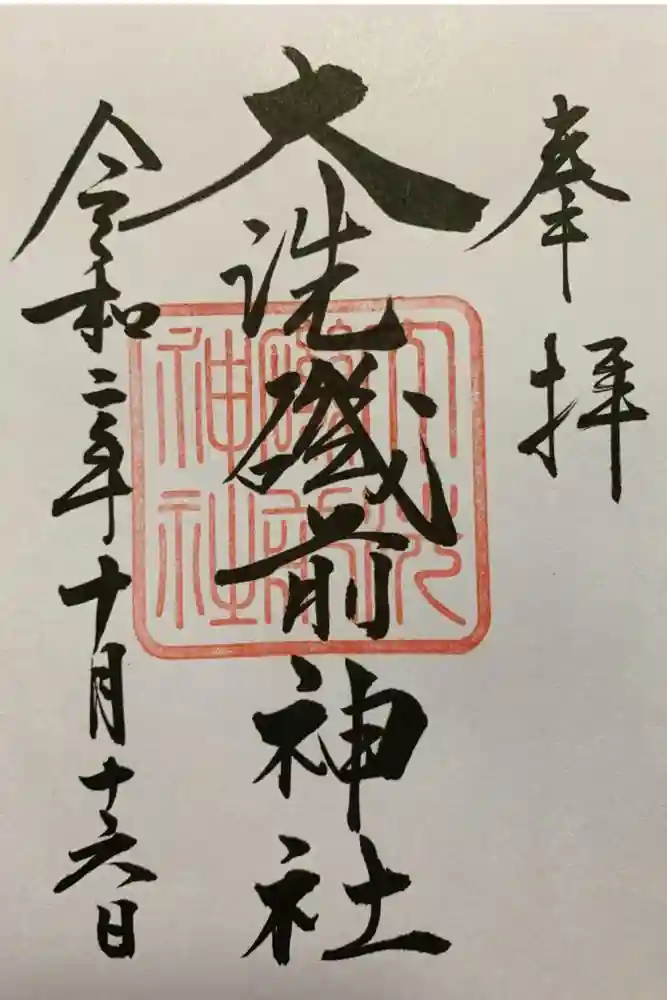 奉拝
大洗磯前神社
令和二年十月十六日
大洗磯前神社